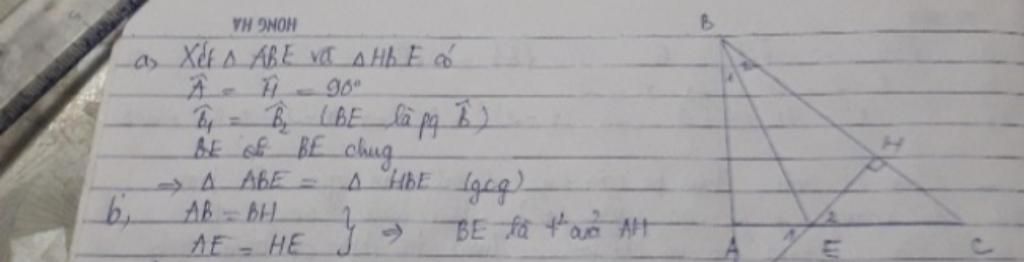 HONG HA
a, Xét Δ ABE và Δ HBE có
Â = Ĥ = 90°
B̂₁ = B̂₂ (BE là pg B̂)
BE chug
⇒ Δ ABE = Δ HBE (gcg)
b, AB = BH
AE = HE } ⇒ BE là t² của AH
B
1 2
H
1 2
A E C